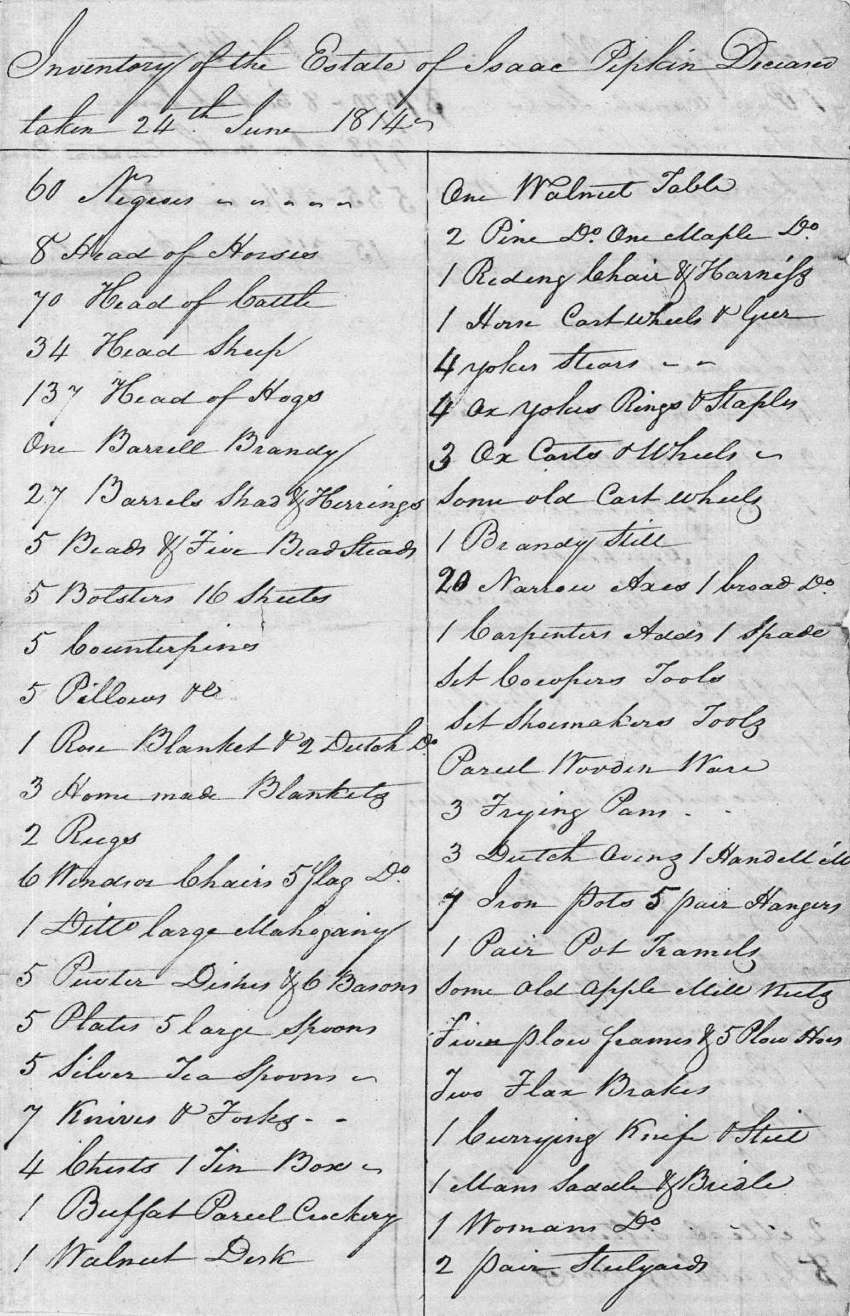 Inventory of the Estate of Isaac Pipkin Deceased
taken 24th June 1814
60 Negroes
8 Head of Horses
70 Head of Cattle
34 Head Sheep
137 Head of Hogs
One Barrell Brandy
27 Barrels Shad & Herrings
5 Beads & Five Bead Steads
5 Bolsters 16 Sheets
5 Counterpines
5 Pillows &c
1 Rose Blanket & 2 Dutch Do
3 Home made Blankets
2 Rugs
6 Windsor Chairs 5 flag Do.
1 Ditto large Mahogainy
5 Pewter Dishes & 6 Basons
5 Plates 5 large Spoons
5 Silver Tea Spoons
7 Knives & Forks - -
4 Chests 1 Tin Box
1 Buffat Parcel Crockery
1 Walnut Desk
One Walnut Table
2 Pine Do. One Maple Do.
1 Rideing Chair & Harness
1 Horse Cart Wheels & Geer
4 yokes Stears - -
4 Ox yokes Rings & Staples
3 Ox Carts & Wheels
Some old Cart Wheels
1 Brandy Still
20 Narrow Axes 1 broad Do.
1 Carpenters Adds 1 Spade
Set Cowpers Tools
Set Shoemakers Tools
Parcel Wooden Ware
3 Frying Pans - -
3 Dutch Ovens 1 Handell Mill
7 Iron Pots 5 pair Hangers
1 Pair Pot Tramels
Some Old Apple Mill Nuts
Five plow frames & 5 Plow Hoes
Two Flax Brakes
1 Currying Knife & Steel
1 Mans Saddle & Bridle
1 Womans Do
2 pair Steelyards